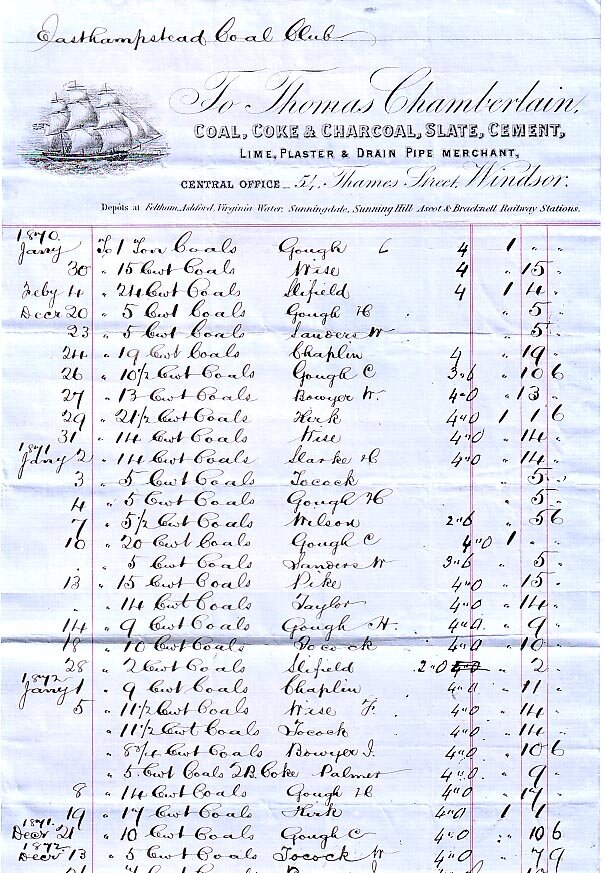 Easthampstead Coal Club
To Thomas Chamberlain,
COAL, COKE & CHARCOAL, SLATE, CEMENT,
LIME, PLASTER & DRAIN PIPE MERCHANT,
CENTRAL OFFICE _ 54, Thames Street, Windsor.
Depôts at Feltham, Ashford, Virginia Water, Sunningdale, Sunning Hill Ascot & Bracknell Railway Stations.
1870
Jany To 1 Ton Coals Gough C 4 1 " "
30 " 15 Cwt Coals Wise 4 " 15 "
Feby 4 " 24 Cwt Coals Slifield 4 1 4 "
Decr 20 " 5 Cwt Coals Gough H " 5 "
23 " 5 Cwt Coals Sanders W " 5 "
24 " 19 Cwt Coals Chaplin 4 " 19 "
26 " 10 1/2 Cwt Coals Gough C 3"6 " 10 6
27 " 13 Cwt Coals Bowyer W. 4"0 " 13 "
29 " 21 1/2 Cwt Coals Kirk 4"0 1 1 6
31 " 14 Cwt Coals Wise 4"0 " 14 "
1871
Jany 2 " 14 Cwt Coals Slarke H 4"0 " 14 "
3 " 5 Cwt Coals Tocock " 5 "
4 " 5 Cwt Coals Gough H " 5 "
7 " 5 1/2 Cwt Coals Wilson 2"6 " 5 6
10 " 20 Cwt Coals Gough C 4"0 1 " "
" 5 Cwt Coals Sanders W 3"6 " 5
13 " 15 Cwt Coals Pike 4"0 " 15 "
" 14 Cwt Coals Taylor 4"0 " 14 "
14 " 9 Cwt Coals Gough H. 4"0 " 9 "
18 " 10 Cwt Coals Tocock 4"0 " 10 "
28 " 2 Cwt Coals Slifield 2"0 4"0 " 2 "
1872
Jany 1 " 9 Cwt Coals Chaplin 4"0 " 11 "
5 " 11 1/2 Cwt Coals Wise F. 4"0 " 14 "
" 11 1/2 Cwt Coals Tocock 4"0 " 14 "
" 8 3/4 Cwt Coals Bowyer J. 4"0 " 10 6
" 5 Cwt Coals 2B. Coke Palmer 4"0 " 9 "
8 " 14 Cwt Coals Gough H 4"0 " 17 "
19 " 17 Cwt Coals Kirk 4"0 1 1
1871
Decr 21 " 10 Cwt Coals Gough C 4"0 " 10 6
1872
Decr 13 " 5 Cwt Coals Tocock W 4"0 " 7 9